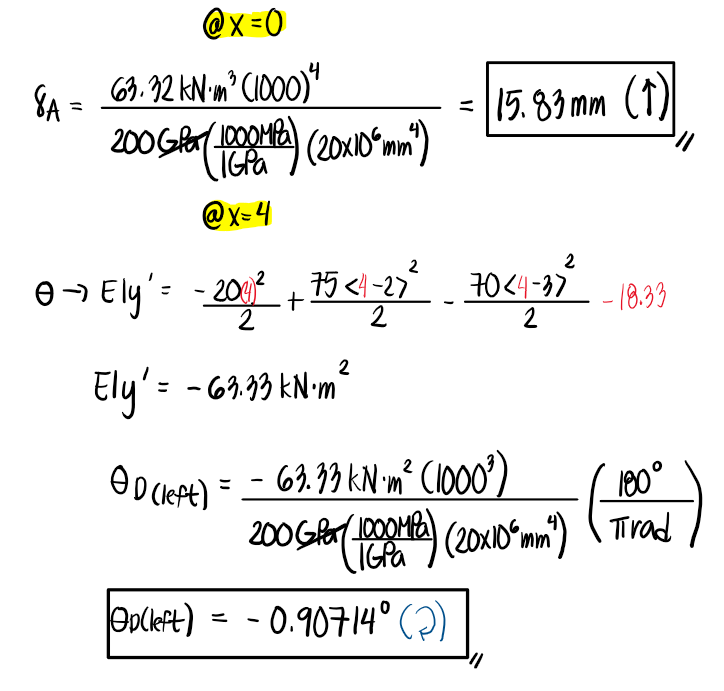 @ x = 0
δA = 63.32 kN·m³ (1000)⁴ / 200 GPa (1000MPa / 1GPa) (20x10⁶ mm⁴) = 15.83 mm (↑)
@ x = 4
θ → EIy' = - 20(4)² / 2 + 75<4-2>² / 2 - 70<4-3>² / 2 - 18.33
EIy' = - 63.33 kN·m²
θD(left) = - 63.33 kN·m² (1000³) / 200 GPa (1000MPa / 1GPa) (20x10⁶ mm⁴) (180° / π rad)
θD(left) = - 0.90714° (↻)